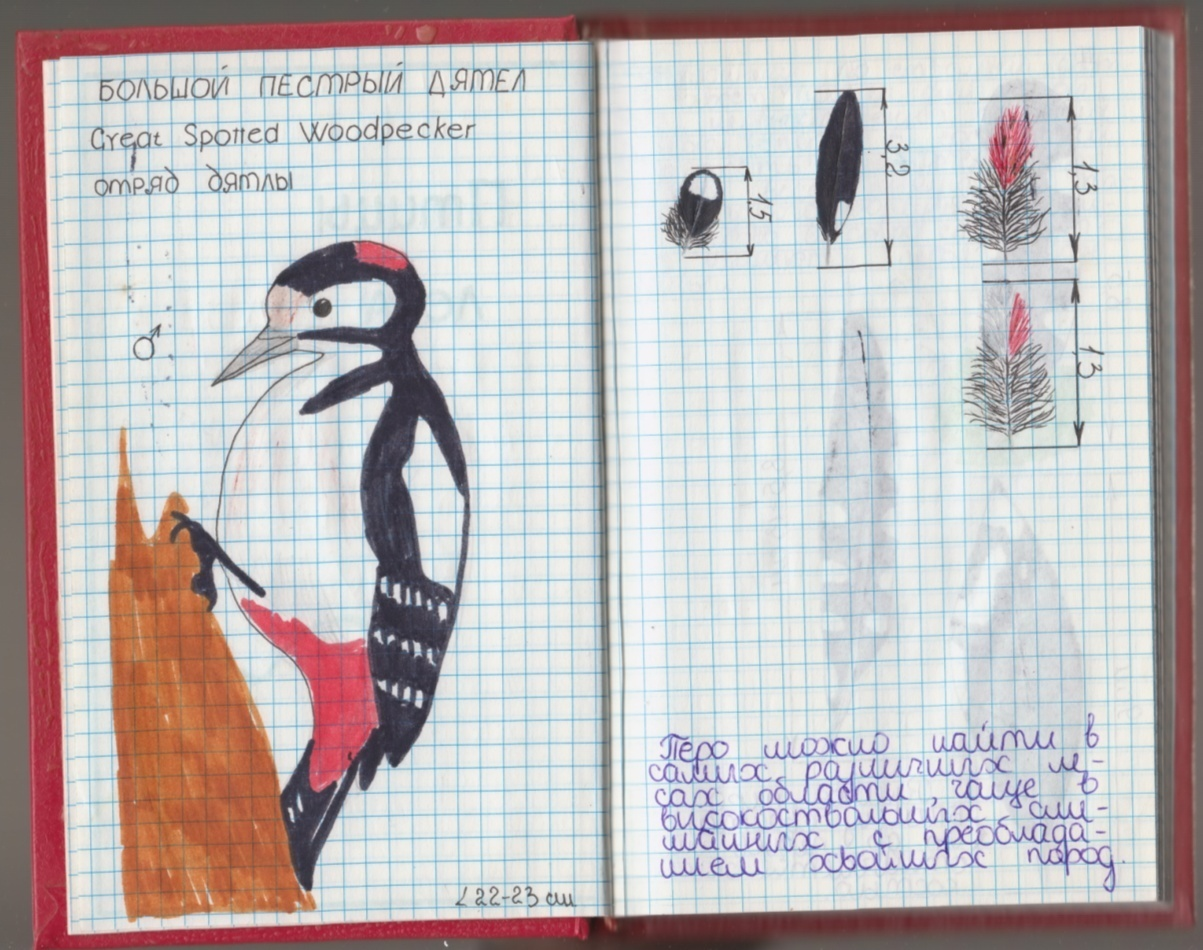 БОЛЬШОЙ ПЕСТРЫЙ ДЯТЕЛ
Great Spotted Woodpecker
отряд дятлы
♂
L 22-23 см
1,5
3,2
1,3
1,3
Перо можно найти в
самых различных ле-
сах области, чаще в
высокоствольных сме-
шанных с преоблада-
нием хвойных пород.